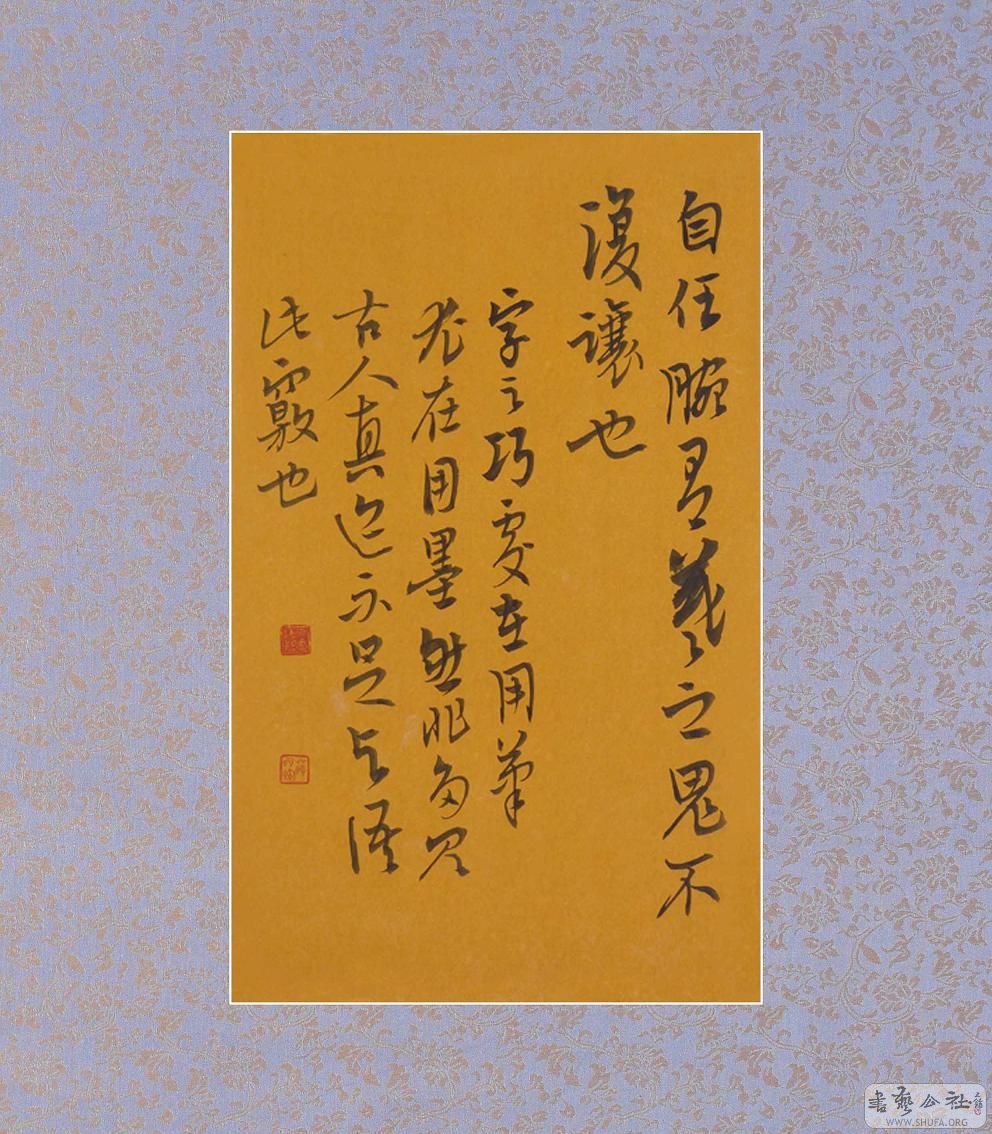 自任腕有羲之鬼不
復讓也
字之巧處在用筆
尤在用墨然非多見
古人真迹不足与語
此竅也
書藝公社
WWW.SHUFA.ORG